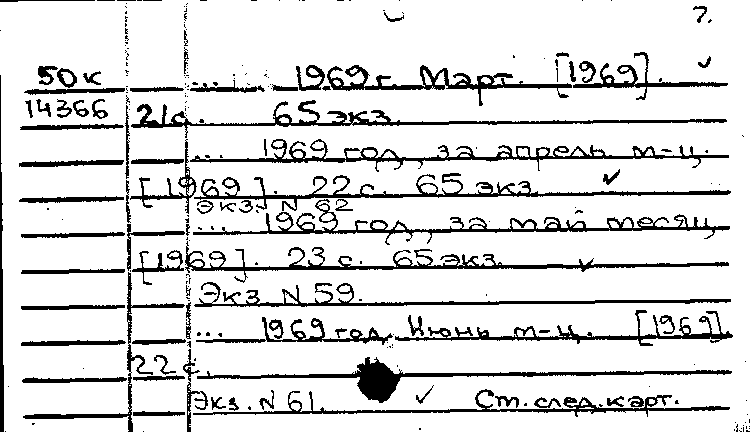 7.
50к ... 1969 г. Март. [1969].
14366 21с. 65 экз.
... 1969 год, за апрель м-ц.
[1969]. 22 с. 65 экз.
Экз. N 62
... 1969 год, за май месяц
[1969]. 23 с. 65 экз.
Экз. N 59.
... 1969 год, Июнь м-ц. [1969].
22 с.
Экз. N 61. Ст. след. карт.